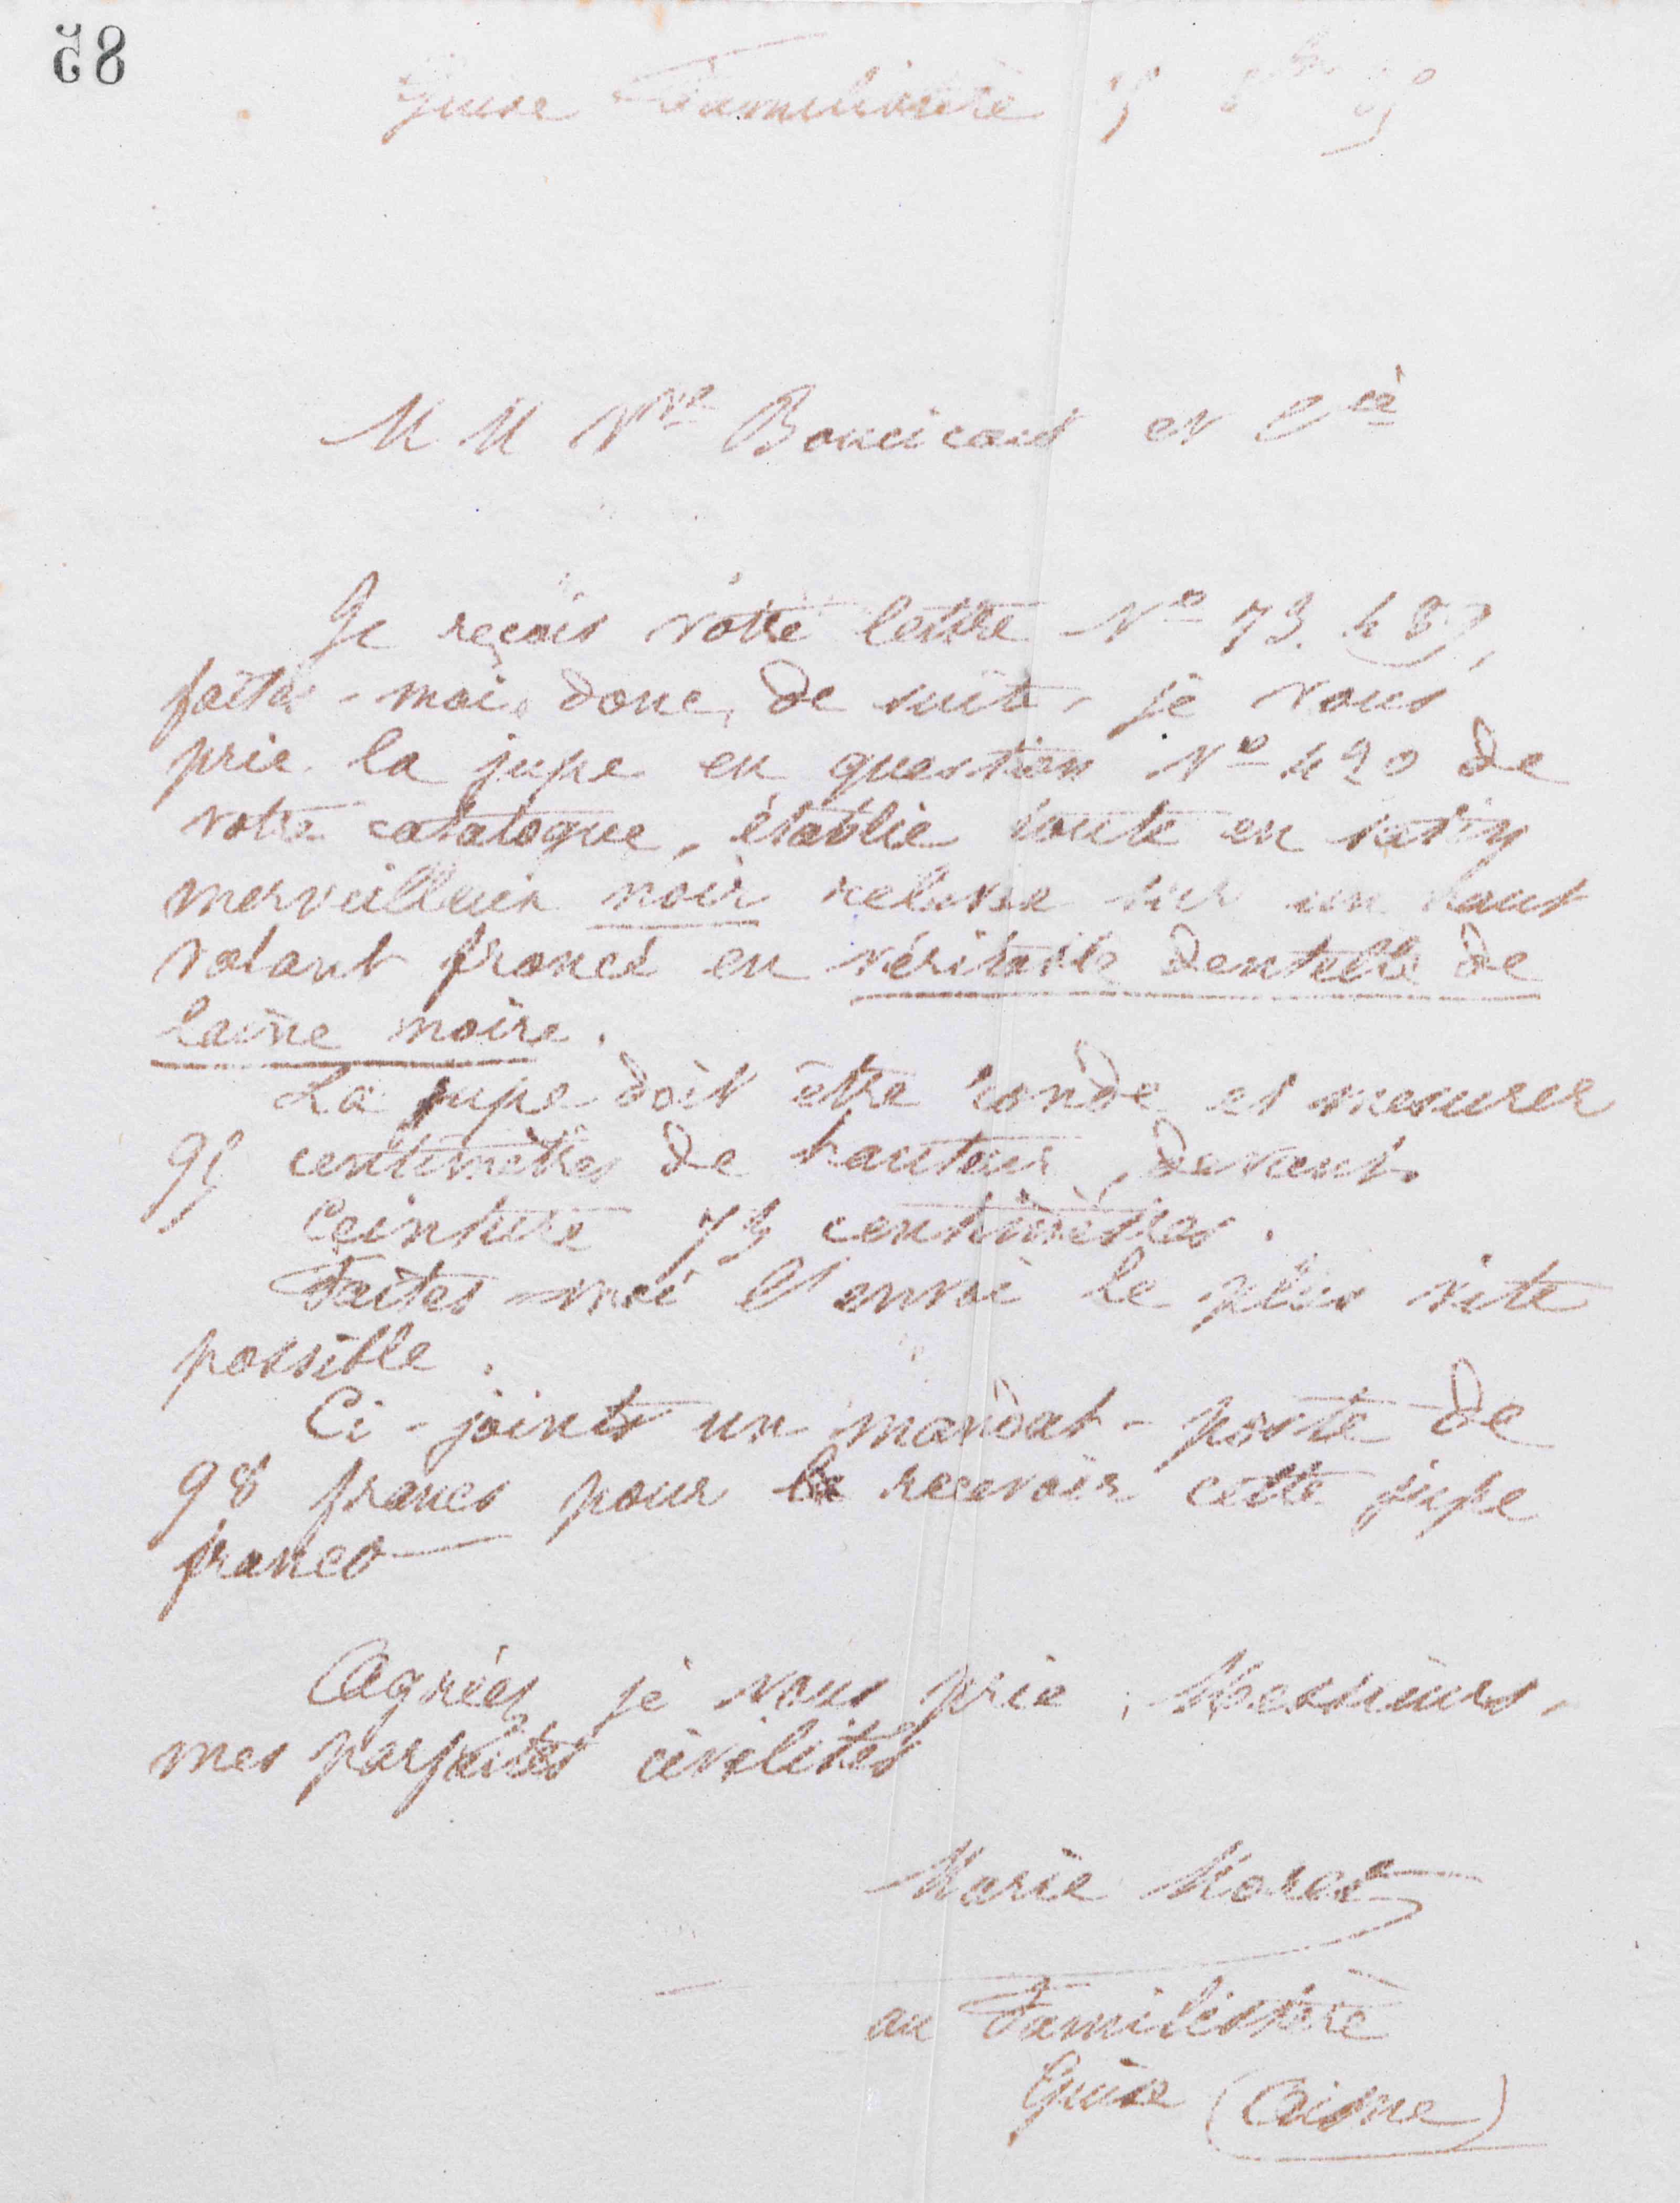 85
Guise Familistère
MM Vve Boucicaut et Cie
Je reçois votre lettre No 73.487,
faites-moi donc, de suite, je vous
prie la jupe en question No 420 de
votre catalogue, établie toute en satin
merveilleux noir relevée sur un haut
volant froncé en véritable dentelle de
laine noire.
La jupe doit être ronde et mesurer
95 centimètres de hauteur, devant.
Ceinture 75 centimètres.
Faites-moi l'envoi le plus vite
possible.
Ci-joints un mandat-poste de
98 francs pour recevoir cette jupe
franco
Agréez, je vous prie, Messieurs,
mes parfaites civilités
Marie Moret
au Familistère
Guise (Aisne)